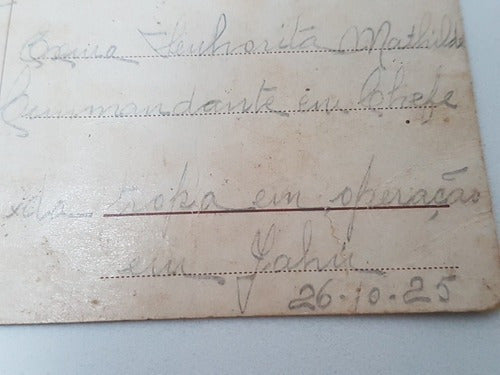 Exma Senhorita Mathilde
Commandante em Chefe
da tropa em operação
em Jahú
26-10-25